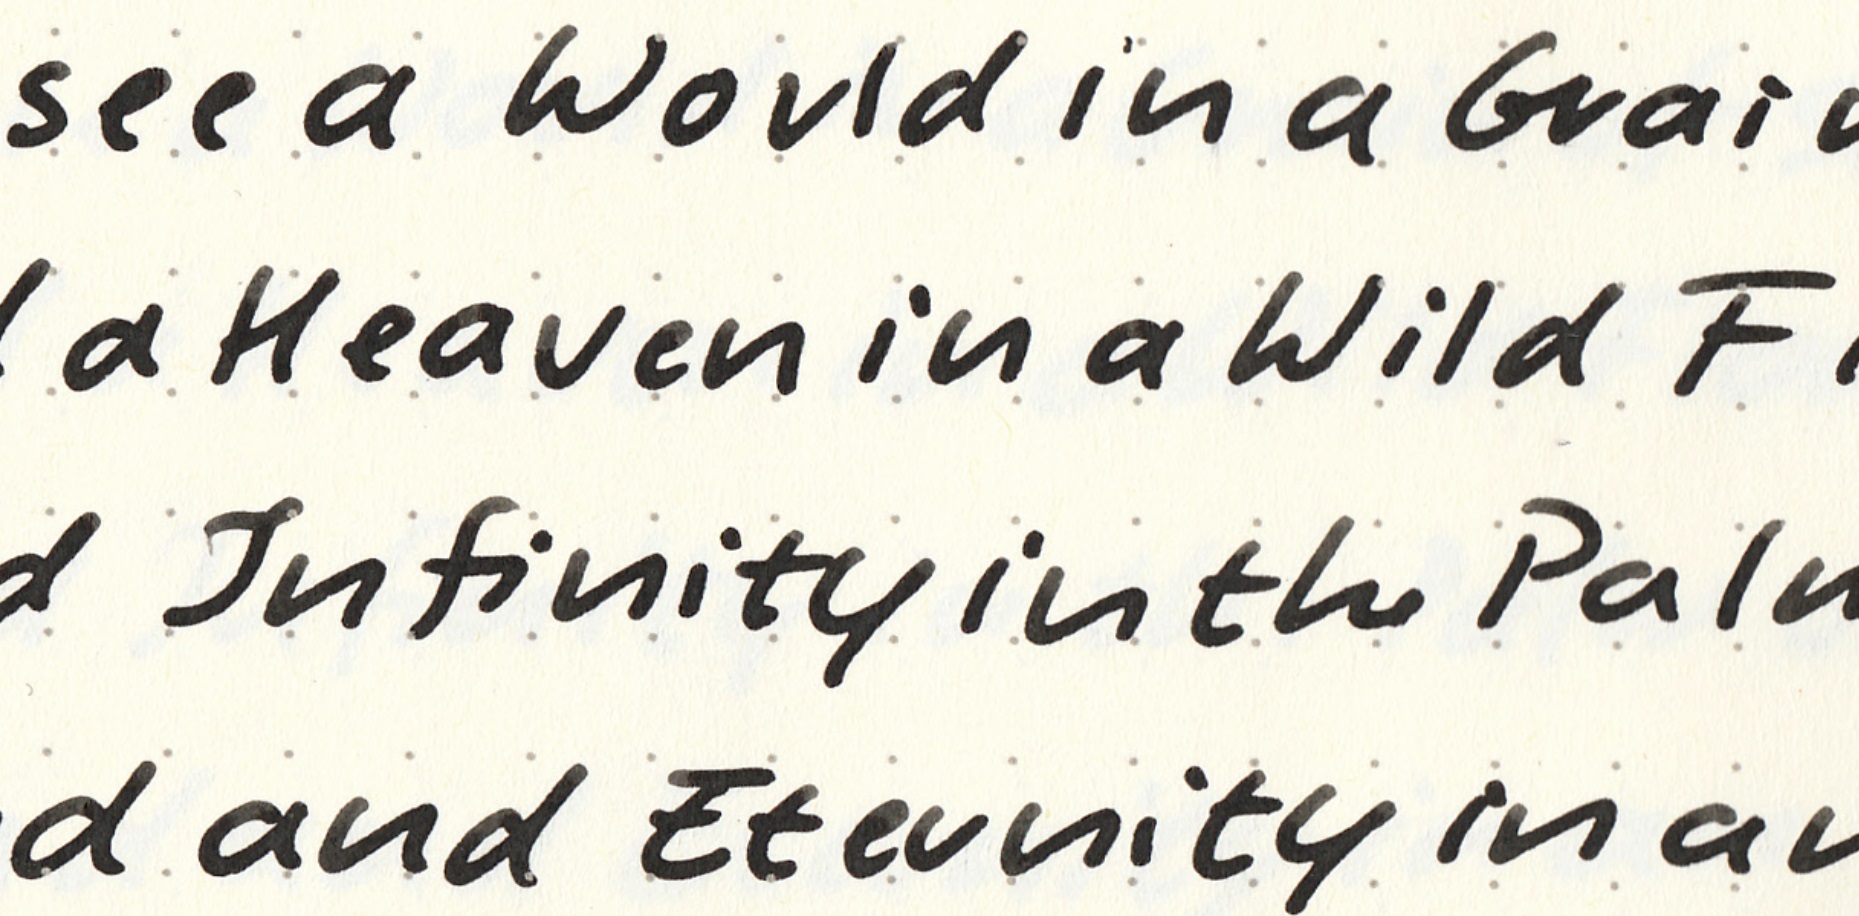 see a World in a Grain
d a Heaven in a Wild Fl
d Infinity in the Palm
nd and Eternity in an